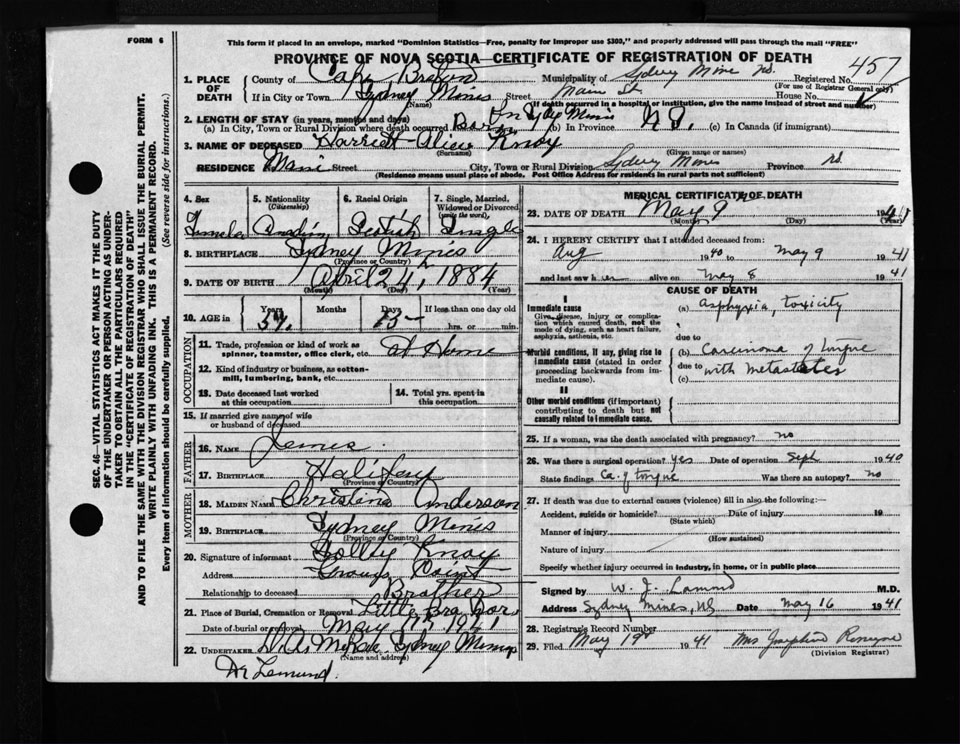 FORM 6
This form if placed in an envelope, marked "Dominion Statistics—Free, penalty for improper use $300," and properly addressed will pass through the mail "FREE"
PROVINCE OF NOVA SCOTIA—CERTIFICATE OF REGISTRATION OF DEATH
SEC. 46—VITAL STATISTICS ACT MAKES IT THE DUTY
OF THE UNDERTAKER OR PERSON ACTING AS UNDER-
TAKER TO OBTAIN ALL THE PARTICULARS REQUIRED
IN THE "CERTIFICATE OF REGISTRATION OF DEATH"
AND TO FILE THE SAME WITH THE DIVISION REGISTRAR WHO SHALL ISSUE THE BURIAL PERMIT.
WRITE PLAINLY WITH UNFADING INK. THIS IS A PERMANENT RECORD.
Every item of information should be carefully supplied. (See reverse side for instructions.)
1. PLACE OF DEATH County of Cape Breton Municipality of Sydney Mines Registered No. 457
(For use of Registrar General only)
If in City or Town Sydney Mines Street Main St House No.
(Name) (If death occurred in a hospital or institution, give the name instead of street and number)
2. LENGTH OF STAY (in years, months and days)
(a) In City, Town or Rural Division where death occurred Born in Syd Mines (b) in Province N.S. (c) in Canada (if immigrant)
3. NAME OF DECEASED Harriett Alice Knox
(Surname) (Given name or names)
RESIDENCE Main Street City, Town or Rural Division Sydney Mines Province
(Residence means usual place of abode. Post Office Address for residents in rural parts not sufficient)
4. Sex 5. Nationality (Citizenship) 6. Racial Origin 7. Single, Married, Widowed or Divorced (write the word)
Female Canadian Scotish Single
8. BIRTHPLACE Sydney Mines
(Province or Country)
9. DATE OF BIRTH April 24, 1884
(Month) (Day) (Year)
10. AGE in Years Months Days If less than one day old
57 15 hrs. or min.
OCCUPATION
11. Trade, profession or kind of work as spinner, teamster, office clerk, etc. at Home
12. Kind of industry or business, as cotton-mill, lumbering, bank, etc.
13. Date deceased last worked at this occupation
14. Total yrs. spent in this occupation.
15. If married give name of wife or husband of deceased
FATHER
16. NAME James
17. BIRTHPLACE Halifax
(Province or Country)
MOTHER
18. MAIDEN NAME Christena Anderson
19. BIRTHPLACE Sydney Mines
(Province or Country)
20. Signature of informant Knox
Address Point
Relationship to deceased Brother
21. Place of Burial, Cremation or Removal Little Bras d'or
Date of burial or removal May 1941
22. UNDERTAKER McRae Sydney Mines
(Name and address)
MEDICAL CERTIFICATE OF DEATH
23. DATE OF DEATH May 9th 1941
(Month) (Day) (Year)
24. I HEREBY CERTIFY that I attended deceased from:
Aug 1940 to May 9 1941
and last saw her alive on May 8 1941
CAUSE OF DEATH
I
Immediate cause
Give disease, injury or complication which caused death, not the mode of dying, such as heart failure, asphyxia, asthenia, etc.
(a) asphyxia, toxicity
due to
Morbid conditions, if any, giving rise to immediate cause (stated in order proceeding backwards from immediate cause).
(b) Carcinoma of tongue
due to with metastates
(c)
II
Other morbid conditions (if important) contributing to death but not causally related to immediate cause.
25. If a woman, was the death associated with pregnancy? no
26. Was there a surgical operation? yes Date of operation Sept 1940
State findings Ca. of tongue Was there an autopsy? no
27. If death was due to external causes (violence) fill in also the following:—
Accident, suicide or homicide? Date of injury 19
(State which)
Manner of injury
(How sustained)
Nature of injury
Specify whether injury occurred in industry, in home, or in public place
Signed by W. J. Lamond M.D.
Address Sydney Mines, NS Date May 16 1941
28. Registrar's Record Number
29. Filed May 19 1941 Mrs Josephine
(Division Registrar)